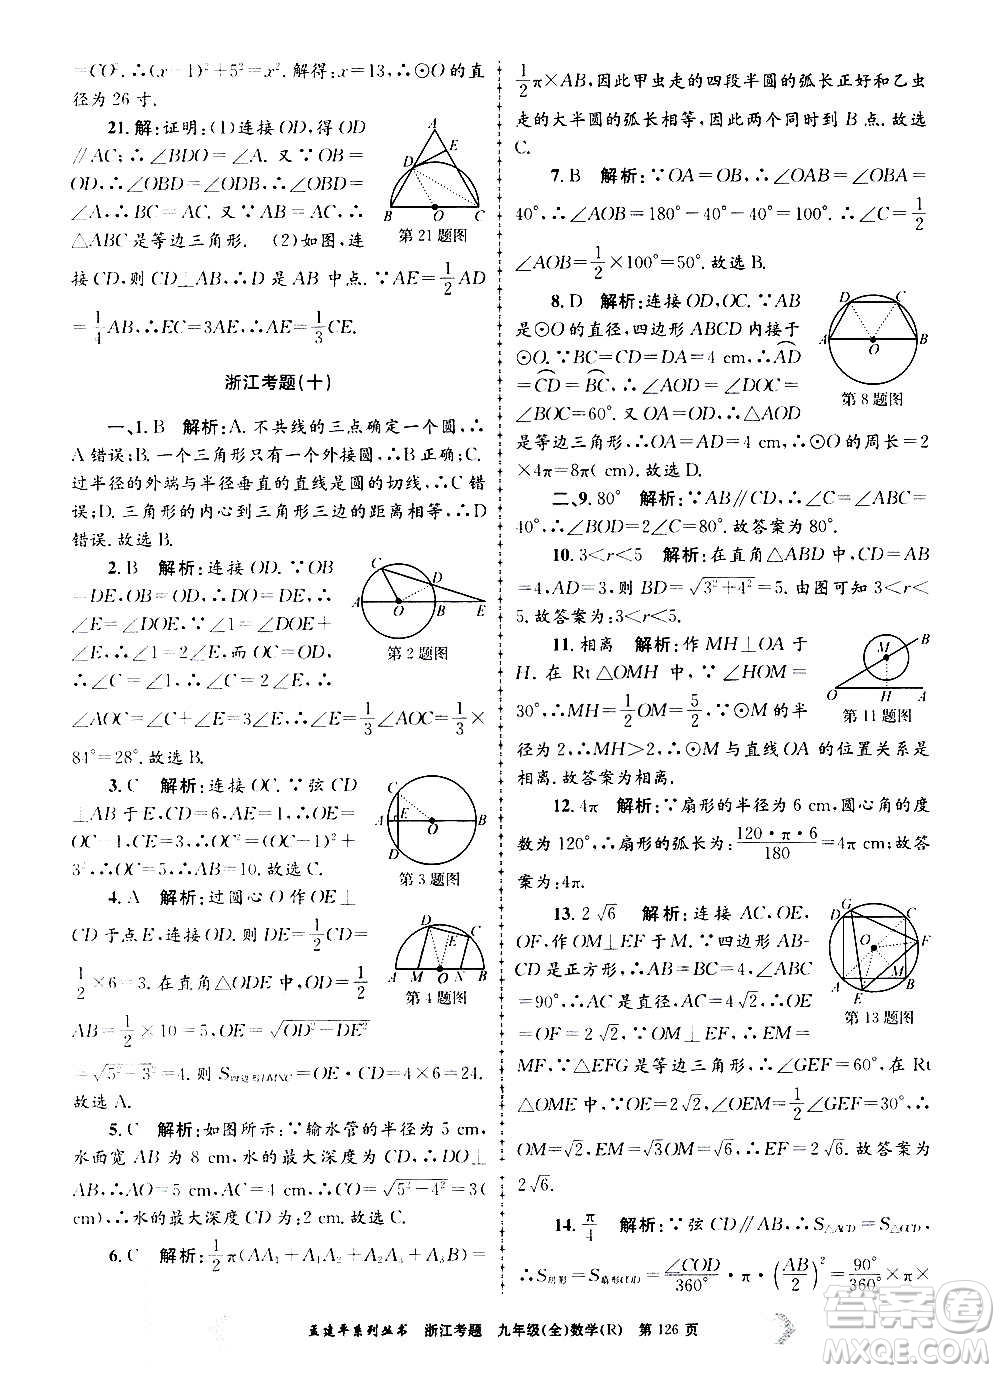 =CO². ∴(x−1)²+5²=x². 解得:x=13,∴⊙O的直
径为26寸.
21. 解:证明:(1)连接OD,得OD
∥AC;∴∠BDO=∠A. 又∵OB=
OD,∴∠OBD=∠ODB,∴∠OBD=
∠A,∴BC=AC. 又∵AB=AC,∴
△ABC是等边三角形. (2)如图,连
接CD,则CD⊥AB,∴D是AB中点. ∵AE=1/2 AD
=1/4 AB,∴EC=3AE,∴AE=1/3 CE.
A
E
D
B
O
C
第21题图
浙江考题(十)
一、1. B 解析:A. 不共线的三点确定一个圆,∴
A错误;B. 一个三角形只有一个外接圆,∴B正确;C.
过半径的外端与半径垂直的直线是圆的切线,∴C错
误;D. 三角形的内心到三角形三边的距离相等,∴D
错误. 故选B.
2. B 解析:连接OD. ∵OB
=DE,∴OD=DE,∴∠DOE=
∠E=∠DOE+∠E,∴∠1=
∠E=∠DOE=2∠E,由OC=OD,得
∠C=∠1=2∠E,∴
∠AOC=∠C+∠E=3∠E,∴∠E=1/3∠AOC=1/3×
84°=28°. 故选B.
C
D
A
O
B
E
第2题图
3. C 解析:连接OC. ∵弦CD
⊥AB于E,CD=6,AE=1,∴
∴OC=5,∴AB=10. 故选C.
C
A
O
B
D
第3题图
4. A 解析:过圆心O作OE⊥
CD于点E,连接OD. 则DE=1/2 CD=
1/2×6=3. 在直角△ODE中,OD=1/2
AB=1/2×10=5,OE=√(OD²−DE²)
=√(5²−3²)=4. 则S四边形DMNC=OE·CD=4×6=24.
故选A.
D
E
C
A
M
O
N
B
第4题图
5. C 解析:如图所示:∵输水管的半径为5 cm,
水面宽AB为8 cm,水的最大深度为CD,∴DO⊥
AB,∴AO=5 cm,AC=4 cm,∴CO=√(5²−4²)=3(
cm),∴水的最大深度CD为:2 cm. 故选C.
6. C 解析:1/2π(AA₁+A₁A₂+A₂A₃+A₃B)=
1/2π×AB,因此甲虫走的四段半圆的弧长正好和乙虫
走的大半圆的弧长相等,因此两个同时到B点. 故选
C.
7. B 解析:∵OA=OB,∴∠OAB=∠OBA=
40°,∴∠AOB=180°−40°−40°=100°. ∴∠C=1/2
∠AOB=1/2×100°=50°. 故选B.
8. D 解析:连接OD,OC. ∵AB
是⊙O的直径,四边形ABCD内接于
⊙O. ∵BC=CD=DA=4 cm,∴AD
=CD=BC,∴∠AOD=∠DOC=
∠BOC=60°. 又OA=OD,∴△AOD
是等边三角形,∴OA=AD=4 cm,∴⊙O的周长=2
×4π=8π(cm). 故选D.
D
C
A
O
B
第8题图
二、9. 80° 解析:∵AB∥CD,∴∠C=∠ABC=
40°,∴∠BOD=2∠C=80°. 故答案为80°.
10. 3<r<5 解析:在直角△ABD中,CD=AB
=4,AD=3,则BD=√(3²+4²)=5. 由图可知3<r<
5. 故答案为:3<r<5.
11. 相离 解析:作MH⊥OA于
H. 在Rt△OMH中,∵∠HOM=
30°,∴MH=1/2 OM=5/2,∵⊙M的半
径为2,∴MH>2,∴⊙M与直线OA的位置关系是
相离. 故答案为:相离.
B
M
O
H
A
第11题图
12. 4π 解析:∵扇形的半径为6 cm,圆心角的度
数为120°,∴扇形的弧长为:120·π·6/180=4π cm. 故答
案为:4π.
13. 2√6 解析:连接AC,OE,
OF,作OM⊥EF于M. ∵四边形AB-
CD是正方形,∴AB=BC=4,∠ABC
=90°,∴AC是直径,AC=4√2,∴OE
=OF=2√2. ∵OM⊥EF,∴EM=
MF,∵△EFG是等边三角形,∴∠GEF=60°. 在Rt
△OME中,∵OE=2√2,∠OEM=1/2∠GEF=30°,∴
OM=√2,EM=√3OM=√6,∴EF=2√6. 故答案为
2√6.
G
D
C
F
O
A
M
B
E
第13题图
14. π/4 解析:∵弦CD∥AB,∴S△ACD=S△OCD,
∴S阴影=S扇形COD=∠COD/360°·π·(AB/2)²=90°/360°×π×
孟建平系列丛书 浙江考题 九年级(全)数学(R) 第126页
答案圈
MXQE.COM